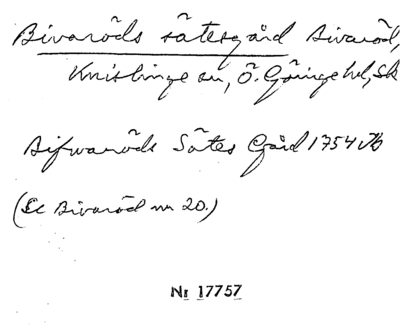 Bivaröds sätesgård Bivaröd,
Knislinge sn, Ö. Göinge hd, Sk
Bifwaröds Sätes Gård 1754 Jb
(Se Bivaröd nr 20.)
Nr 17757